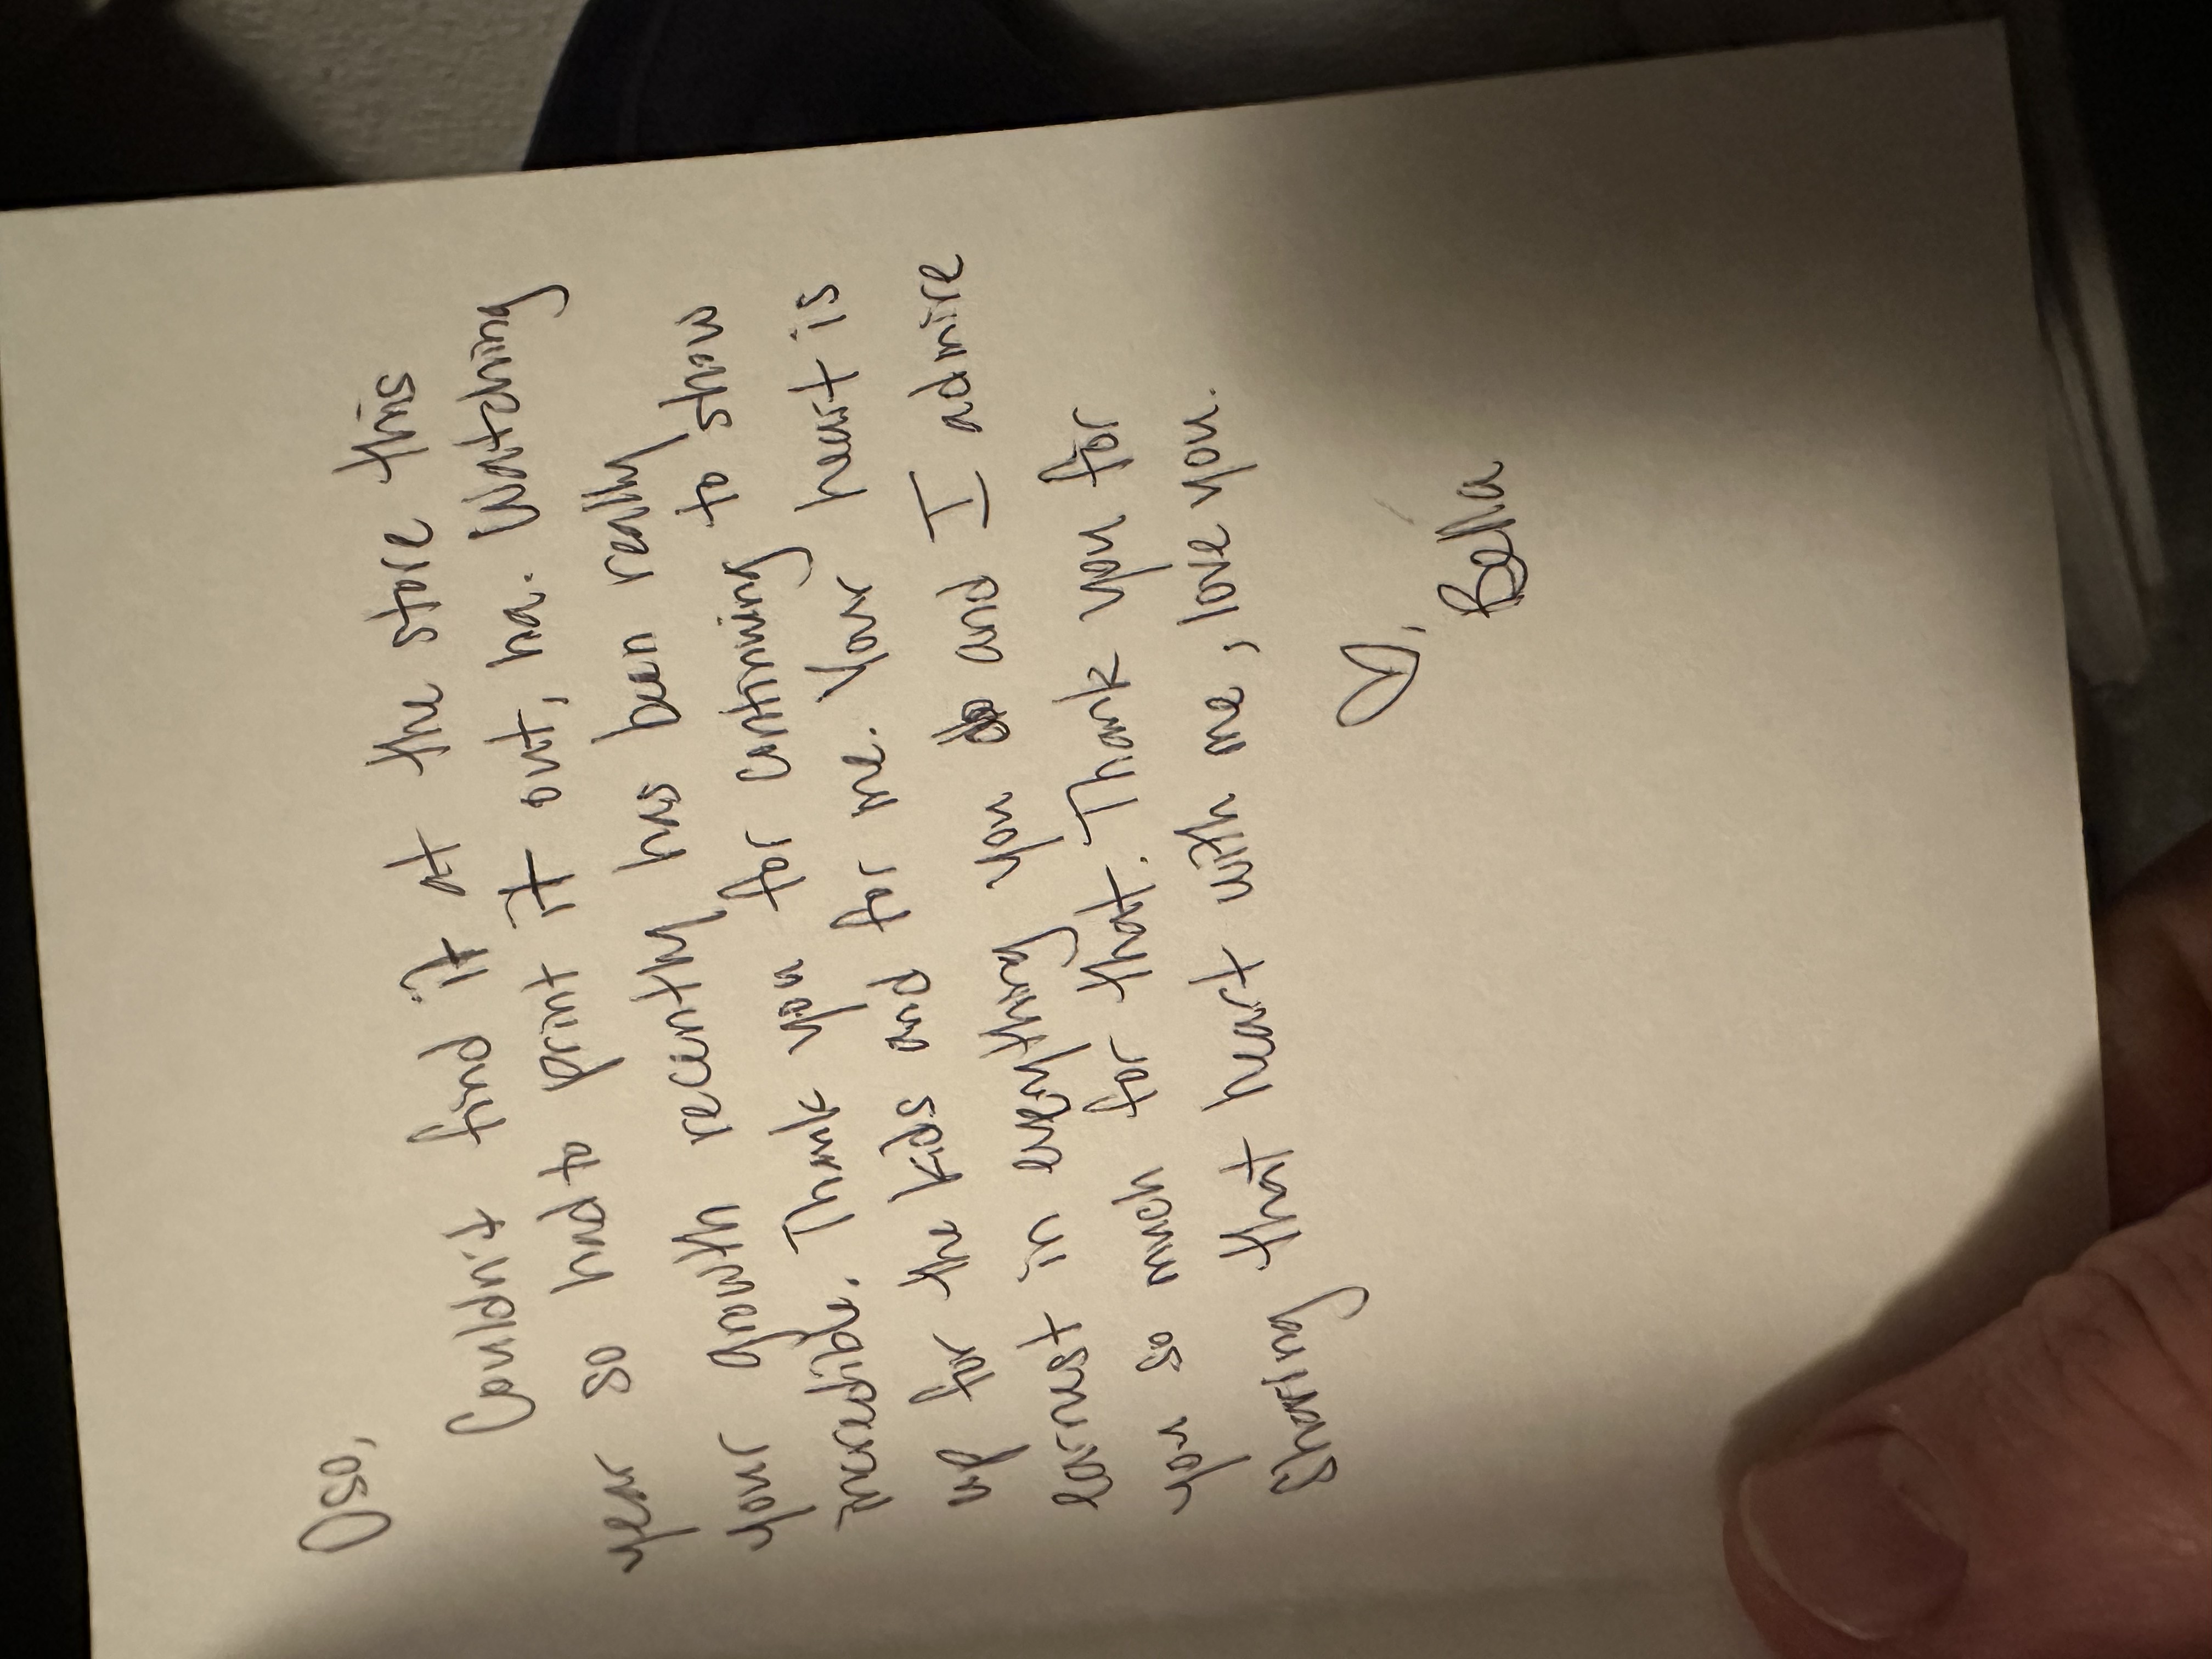 Oso,
Couldn't find it at the store this
year so had to print it out, ha. Watching
your growth recently has been really
incredible. Thank you for continuing to show
up for the kids and for me. Your heart is
earnest in everything you do and I admire
you so much for that. Thank you for
sharing that heart with me, love you.
♡, Bella